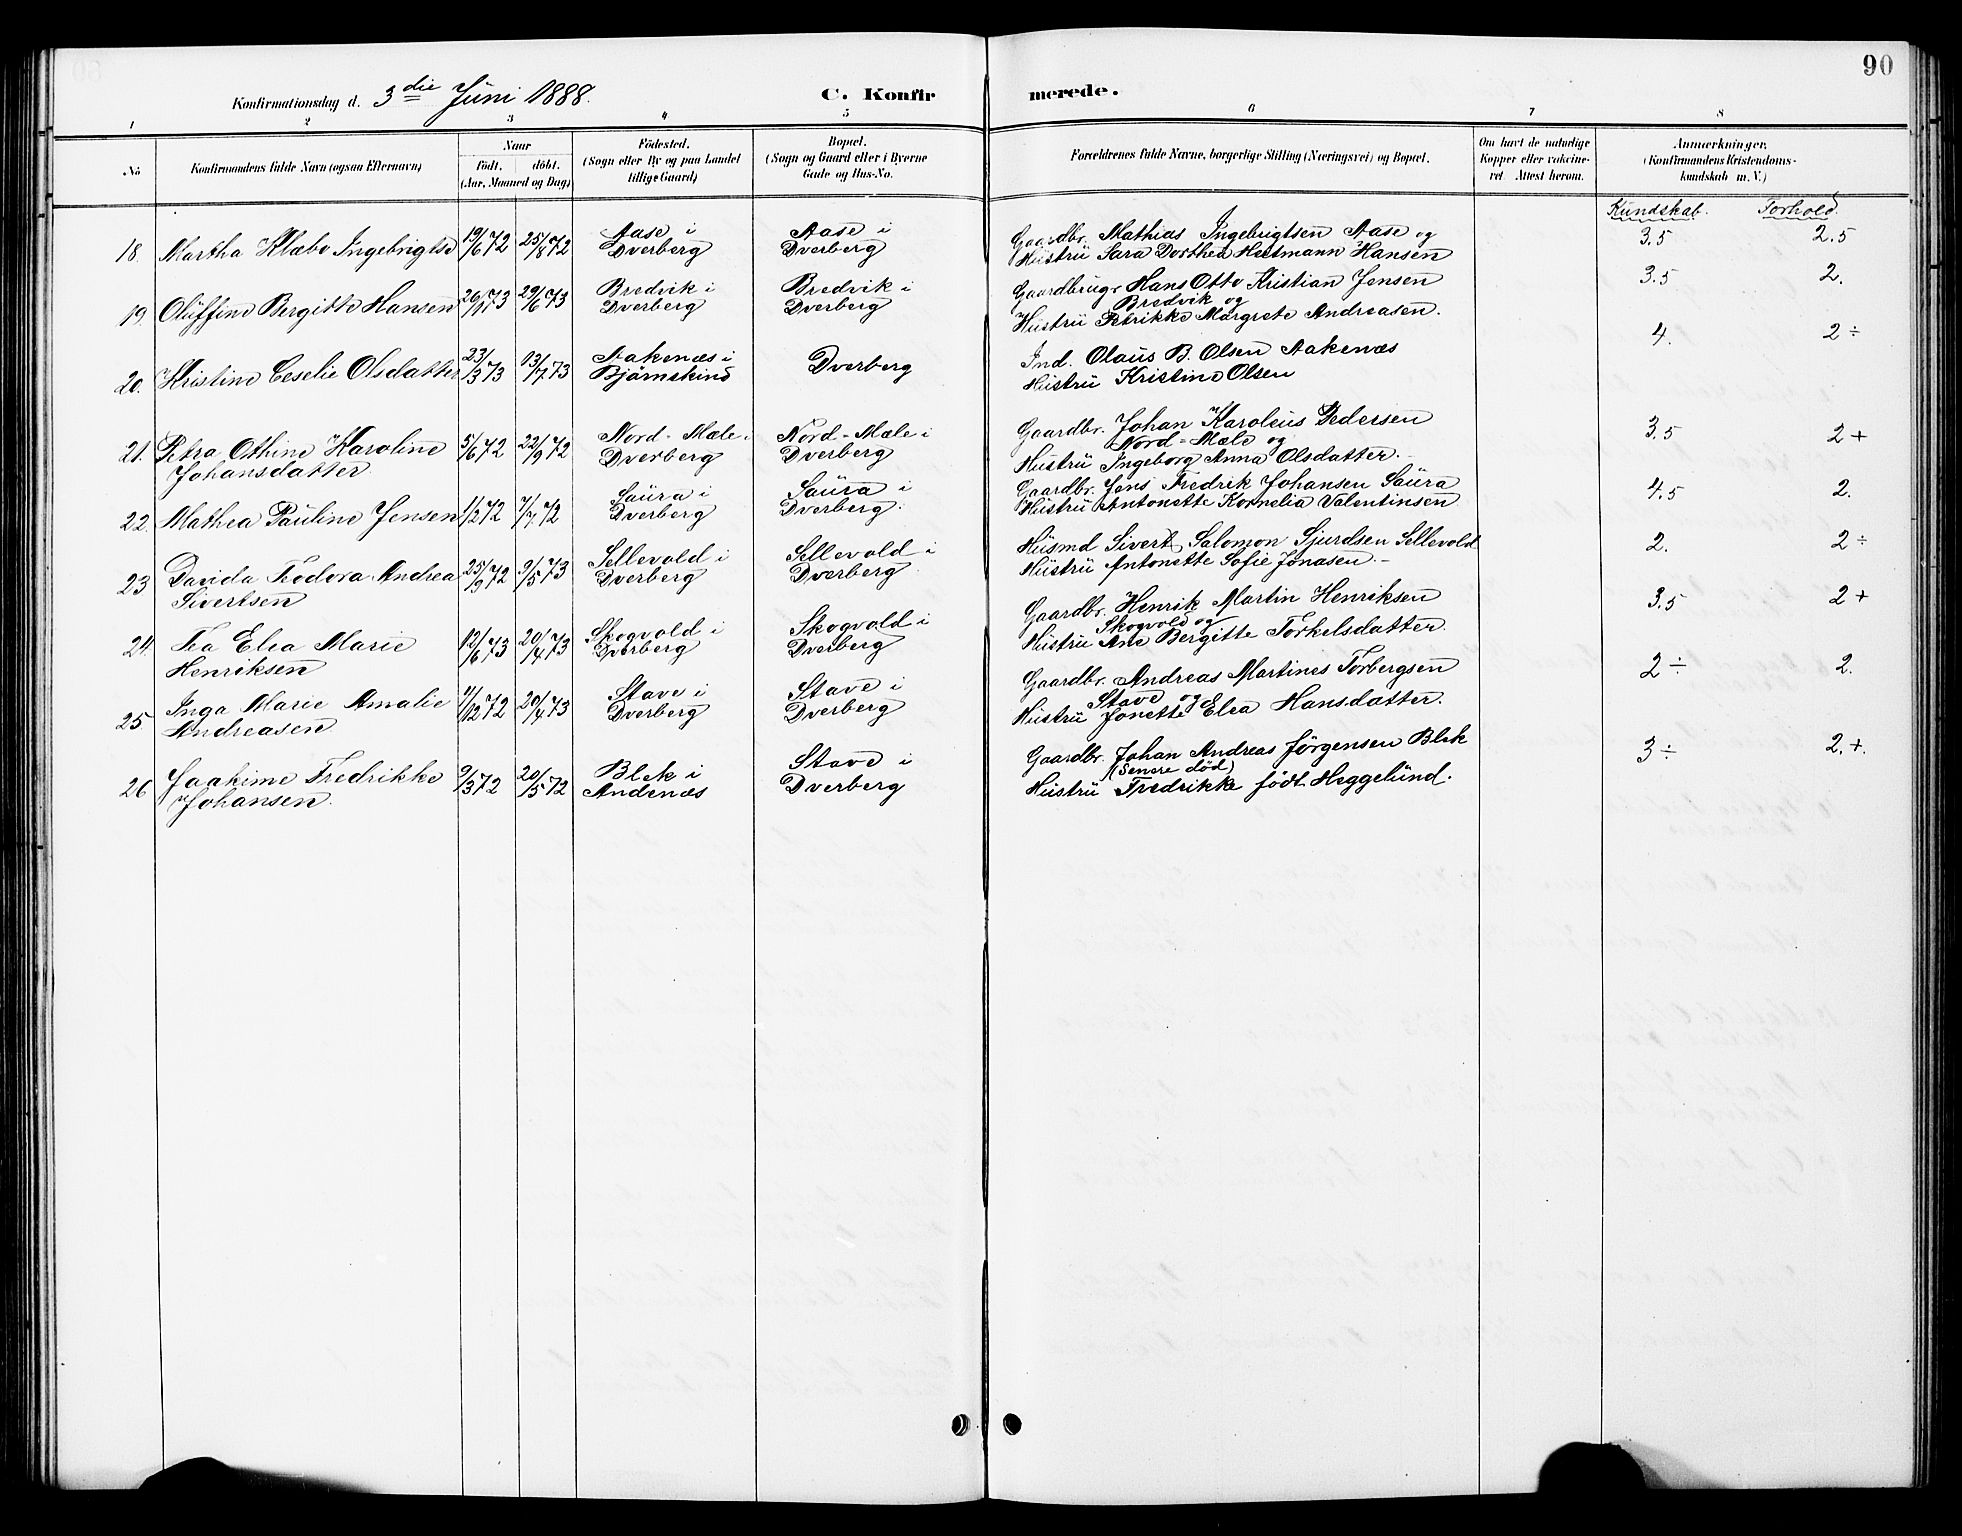 90
Konfirmationsdag d. 3die Juni 1888. C. Konfir merede.
1 2 3 4 5 6 7 8
No Konfirmandens fulde Navn (ogsaa Efternavn) Naar født, døbt. (Aar, Maaned og Dag) Födested. (Sogn eller By og paa Landet tillige Gaard) Bopæl. (Sogn og Gaard eller i Byerne Gade og Hus-No. Forældrenes fulde Navne, borgerlige Stilling (Næringsvei) og Bopæl. Om havt de naturlige Kopper eller vaksineret. Attest herom. Anmerkninger. (Konfirmandens Kristendomskundskab m. V.)
Kundskab. Forhold.
18. Martha Klæbo Ingebrigtse 19/6 72 25/8 72 Aase i Dverberg Aase i Dverberg Gaardbr. Mathias Ingebrigtsen Aase og 3.5 2.5
Hustrü Sara Dorthea Hestmann Hansen
19. Olüffine Bergitte Hansen 26/1 73 29/6 73 Bredvik i Dverberg Bredvik i Dverberg Gaardbrugr Hans Otto Kristian Jensen 3.5 2.
Bredvik og
Hüstrü Petrikke Margrete Andreasen.
20. Kristine Ceselie Olsdatter 23/3 73 13/7 73 Aakenæs i Bjørnskind Dverberg Ind. Olaus B. Olsen Aakenæs 4. 2÷
Hüstrü Kristine Olsen
21. Petra Othine Karoline 5/6 72 22/9 72 Nord-Mæle i Dverberg Nord-Mæle i Dverberg Gaardbr. Johan Karoleus Pedersen 3.5 2+
Johansdatter Nord-Mæle og
Hüstrü Ingeborg Anna Olsdatter.
22. Mathea Pauline Jensen 1/2 72 7/7 72 Saüra i Dverberg Saüra i Dverberg. Gaardbr. Jens Fredrik Johansen Saüra 4.5 2.
Hüstrü Antonette Kornelia Valentinsen
23 Davida Teodora Andrea 25/9 72 9/5 73 Sellevold i Dverberg Sellevold i Dverberg Hüsmd Sivert Salomon Sjurdsen Sellevold 2. 2÷
Sivertsen Hüstrü Antonette Sofie Jonasen.
24. Tea Elea Marie 12/6 73 20/4 73 Skogvold i Dverberg Skogvold i Dverberg Gaardbr. Henrik Martin Henriksen 3.5 2+
Henriksen Skogvold og
Hüstrü Ane Bergitte Torkelsdatter.
25. Inga Marie Amalie 4/12 72 20/4 73 Stave i Dverberg Stave i Dverberg Gaardbr. Andreas Martines Torbergsen 2÷ 2.
Andreasen Stave og
Hüstrü Jonette Elea Hansdatter.
26 Joakime Fredrikke 9/3 72 20/5 72 Blek i Andenæs Stave i Dverberg Gaardbr. Johan Andreas Jörgensen Blek 3÷ 2.+.
Johansen. (Senere död)
Hüstrü Fredrikke födt Heggelünd.